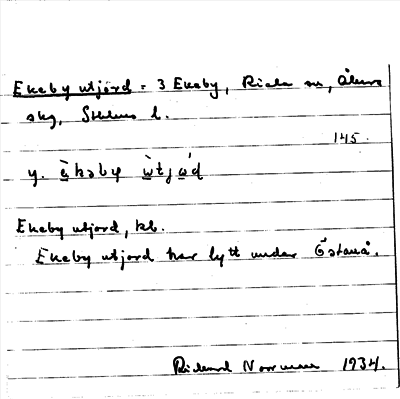 Ekeby utjord = 3 Ekeby, Riala sn, Åkers
skg, Sthlms l.
145.
y. è̱kəby ẁ̱tjώ̱d
Ekeby utjord, kb.
Ekeby utjord har lytt under Östanå.
Rickard Norrman 1934.